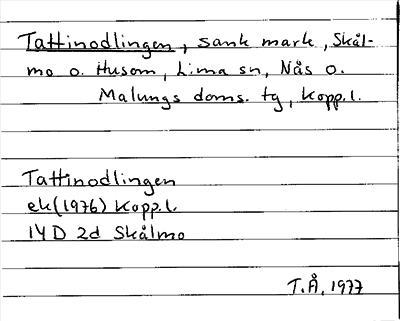 Tattinodlingen, sank mark, Skål-
mo o. Husom, Lima sn, Nås o.
Malungs doms. tg, Kopp.l.
Tattinodlingen
ek(1976) Kopp.l.
14D 2d Skålmo
T.Å, 1977